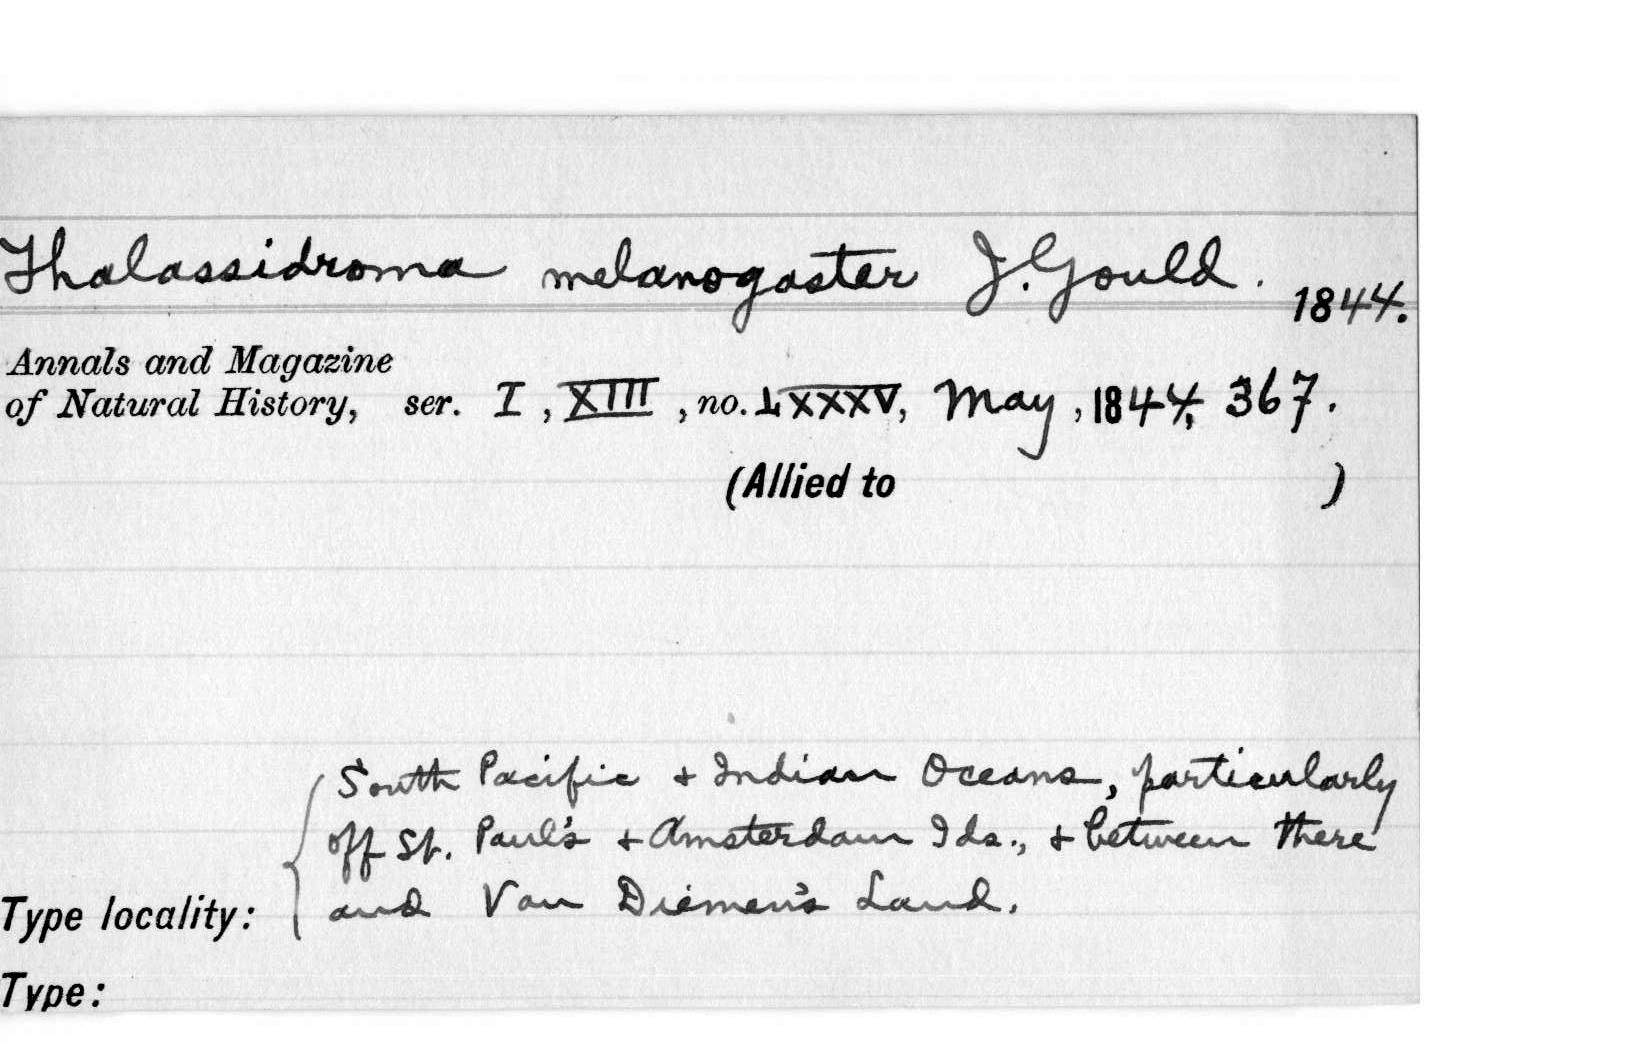 Thalassidroma melanogaster J. Gould. 1844.
Annals and Magazine
of Natural History, ser. I, XIII, no. LXXXV, May, 1844, 367.
(Allied to )
South Pacific + Indian Oceans, particularly
off St. Paul's + Amsterdam Ids., + between there
and Van Diemen's Land.
Type locality:
Type: